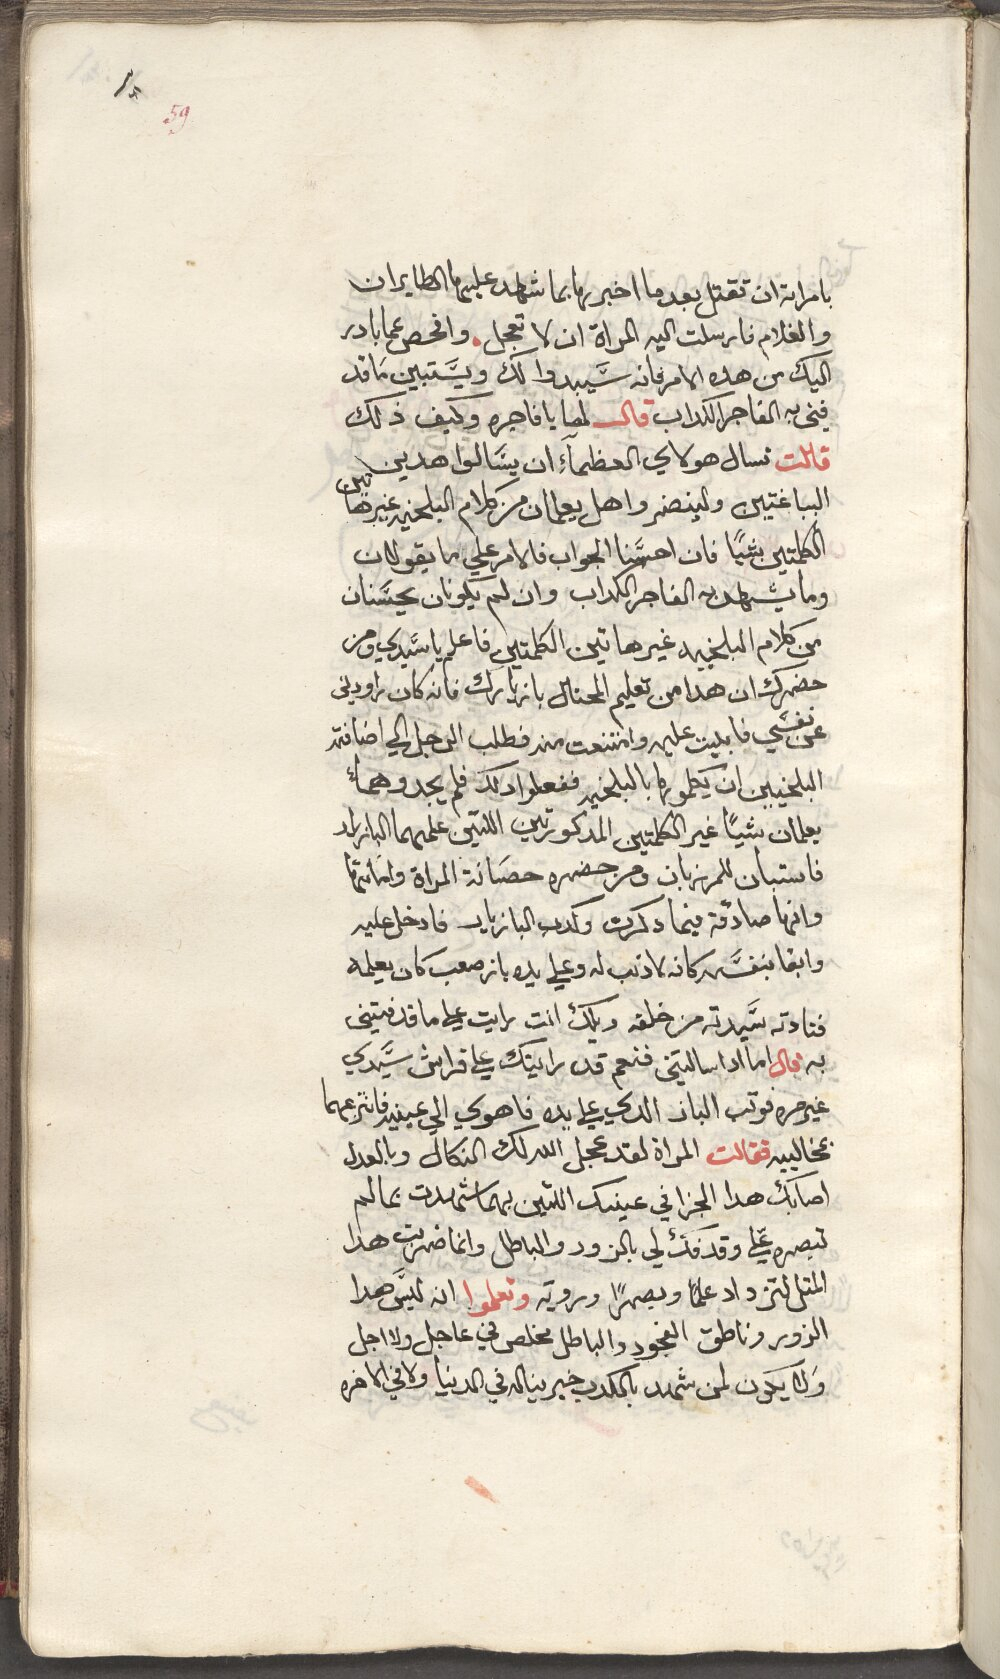 59
بامراته ان تقتل بعد ما اخبرها بما شهد عليها الطايران
والغلام فارسلت اليه المراة ان لا تعجل . وافحص عما بادر
اليك من هده الامر فانه سيبدوا لك ويستبين ما قد
فيني به الفاجر الكداب قال لها يا فاجره وكيف ذلك
قالت تسال هولاي العظمآء ان يسالوا هدين
الببا غتين ولينضروا هل يعلمان من كلام البلخيه غيرها تين
الكلمتين بشيًا فان احسنا الجواب فالامر علي ما يقولان
وما يشهد به الفاجر الكداب وان لم يكونان يحسنان
من كلام البلخيه غير هاتين الكلمتين فاعلم يا سيدي ومن
حضرك ان هدا من تعليم المحتال بازيارك فانه كان راودني
عن نفسي فابيت عليه وامتنعت منه فطلب الرجل الي اضافته
البلخيين ان يكلموها بالبلخيه ففعلوا دلك فلم يجدوهما
يعلمان شيًا غير الكلمتين المدكورتين اللتين علمهما البازيار
فاستبان للمرزبان ومن حضره حصانة المراة وامانتها
وانها صادقة فيما دكرت وكدب البازيار فادخل عليه
واثقا بنفسه كانه لا ذنب له وعلي يده باز صعب كان يعلمه
فنادته سيدته من خلفه ويلك انت رايت علي ما قدفتيني
به قال اما ادا سالتيني فنعم قد رايتك علي فراش سيدي
غير مره فوتب الباز الدي علي يده فاهوي الي عينيه فانتزعهما
بمخاليبه فقالت المراة لقد عجل الله لك النكال وبالعدل
اصابك هدا الجزا في عينيك اللتين بهما شهدت بما لم
تبصره علي وقدفك لي بالزور والباطل وانما ضربت هدا
المتل لتزداد علمًا وبصرًا وروية وتعلموا انه ليس هدا
الزور وناطق الفجور والباطل مخلص في عاجل ولا اجل
ولا يكون لمن شهد بالكدب خير يناله في الدنيا ولا في الاخره